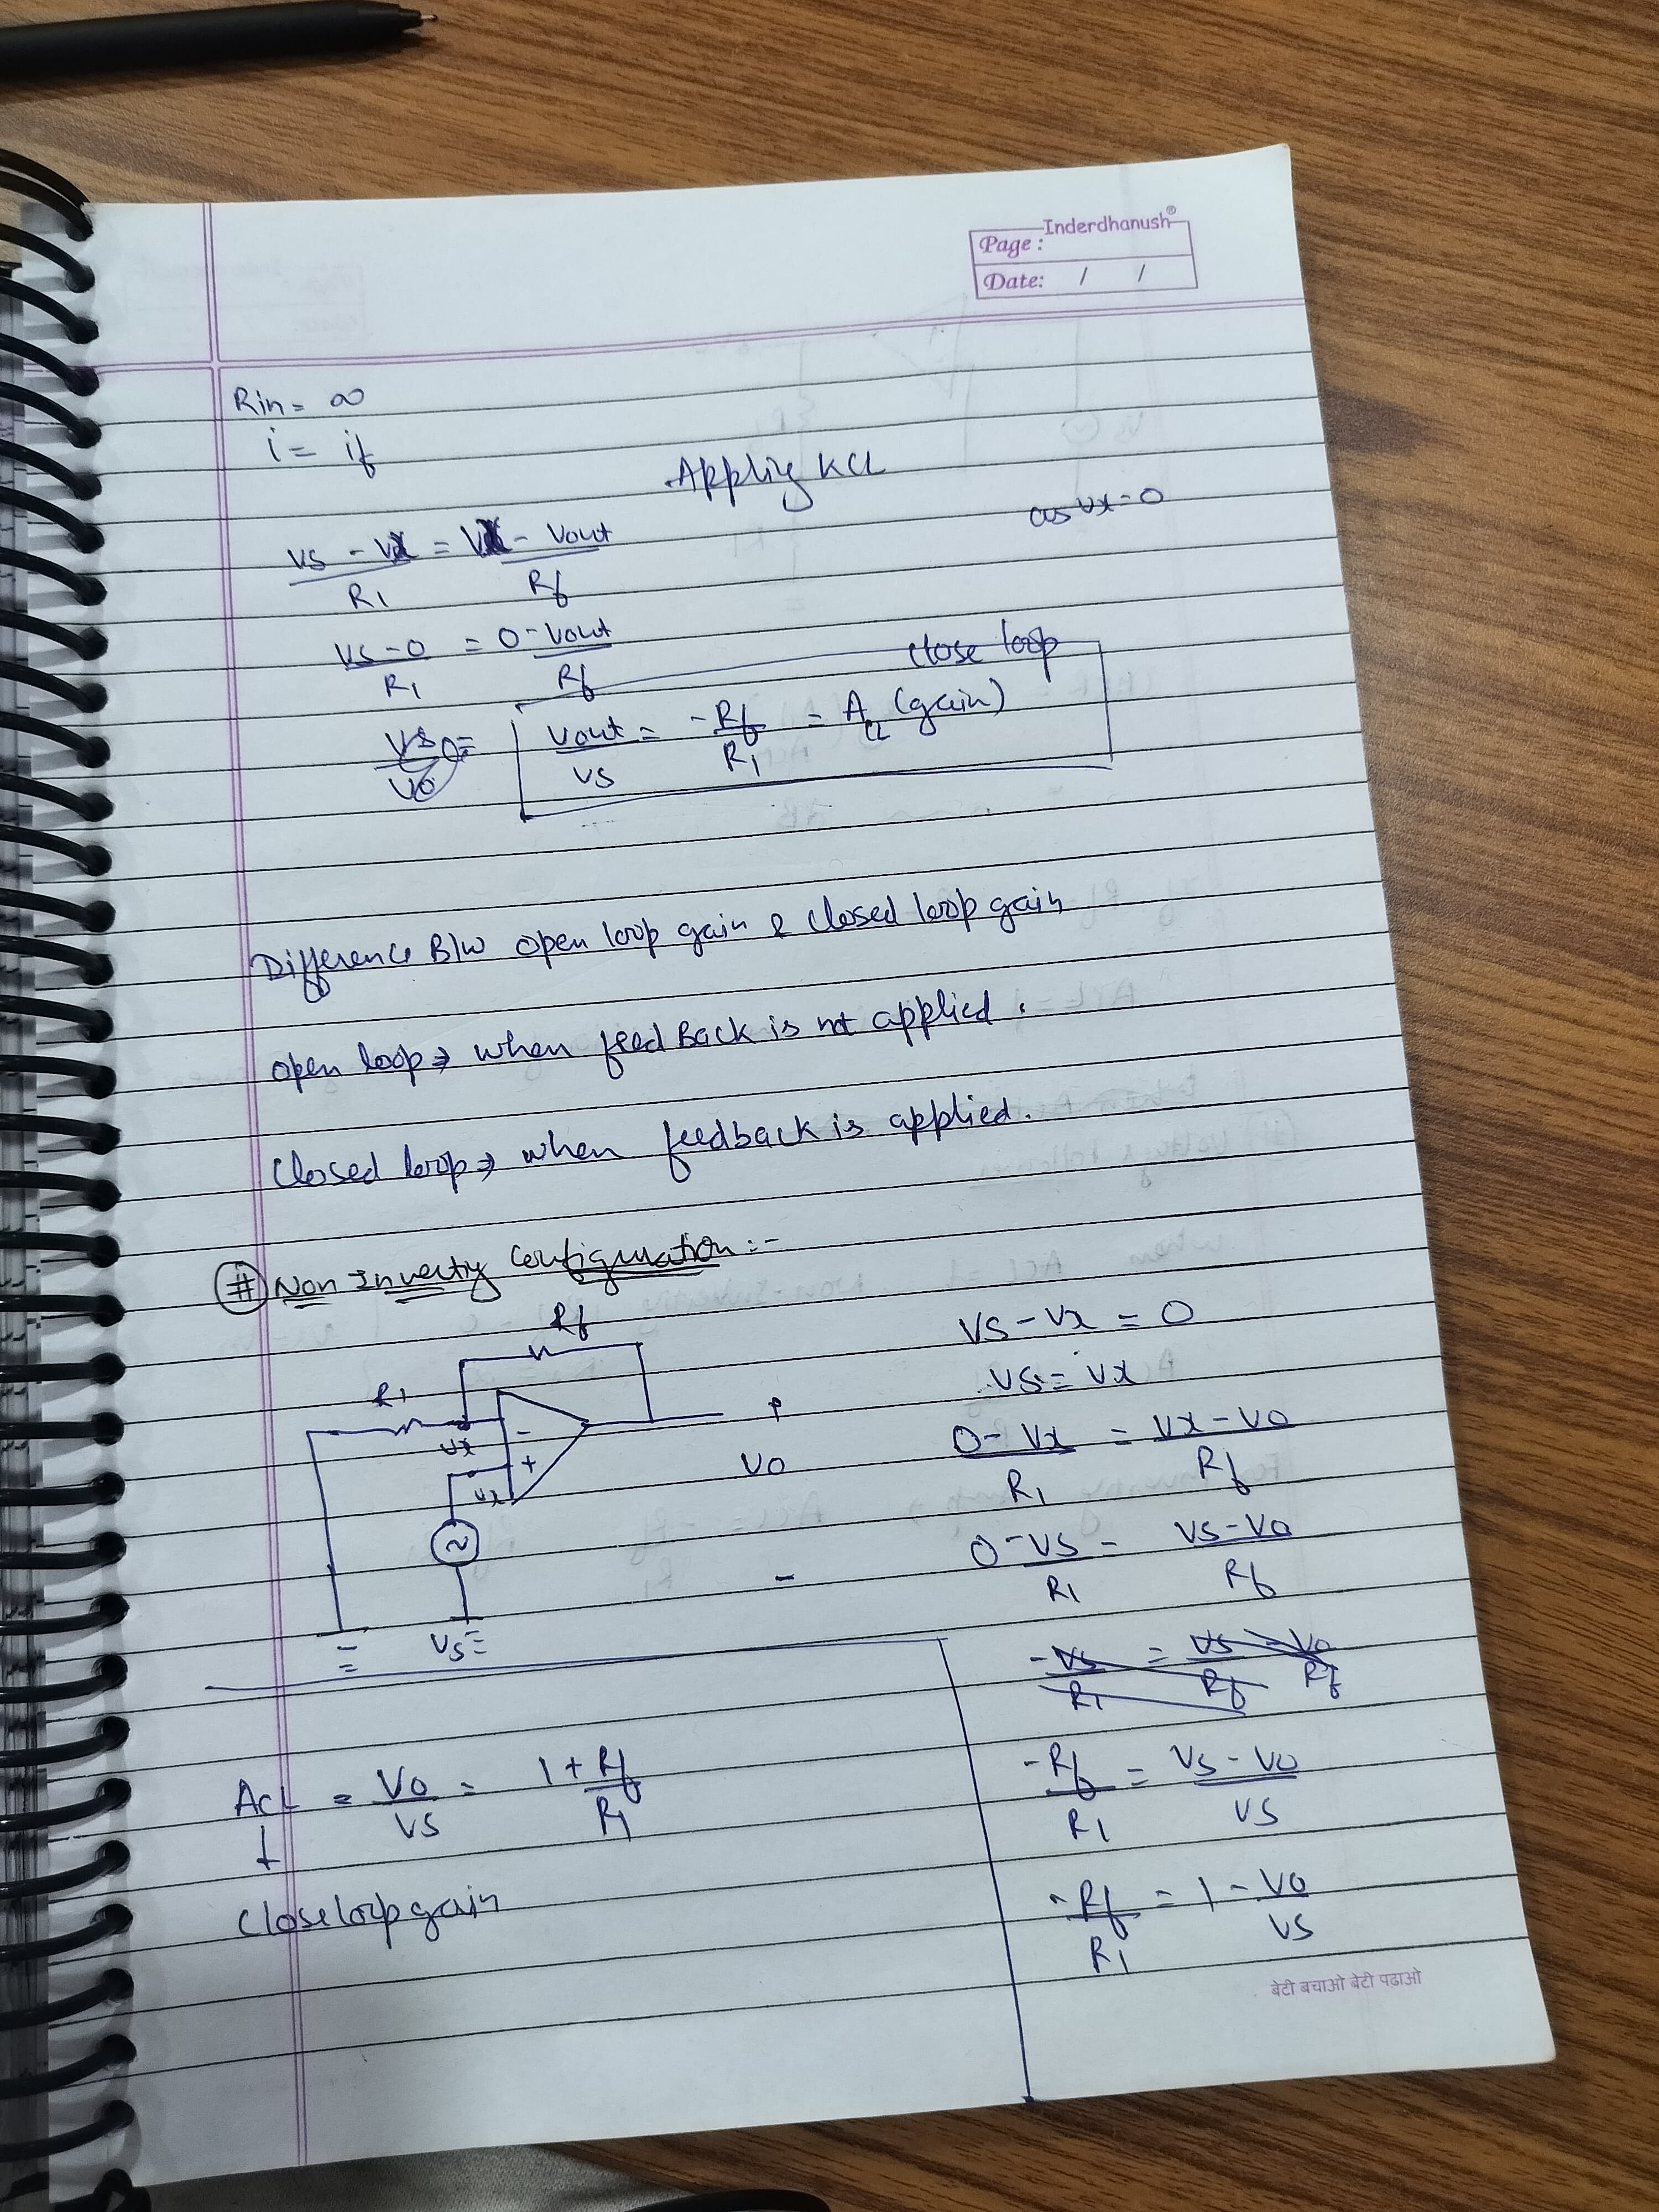 Inderdhanush®
Page :
Date: / /
Rin = ∞
i = if
Appliy KCL
as Vx = 0
Vs - Vx / R1 = Vx - Vout / Rf
Vs - 0 / R1 = 0 - Vout / Rf
close loop
Vout / Vs = -Rf / R1 = ACL (gain)
Difference B/w open loop gain & closed loop gain
open loop ⇒ when feed Back is not applied.
closed loop ⇒ when feedback is applied.
# Non Inverty Configuration :-
Rf
R1
Vx
-
+
Vx
+
Vo
-
Vs
Vs - Vx = 0
Vs = Vx
0 - Vx / R1 = Vx - Vo / Rf
0 - Vs / R1 = Vs - Vo / Rf
-Vs / R1 = Vs / Rf - Vo / Rf
-Rf / R1 = Vs - Vo / Vs
-Rf / R1 = 1 - Vo / Vs
ACL = Vo / Vs = 1 + Rf / R1
↓
Close loop gain
बेटी बचाओ बेटी पढाओ